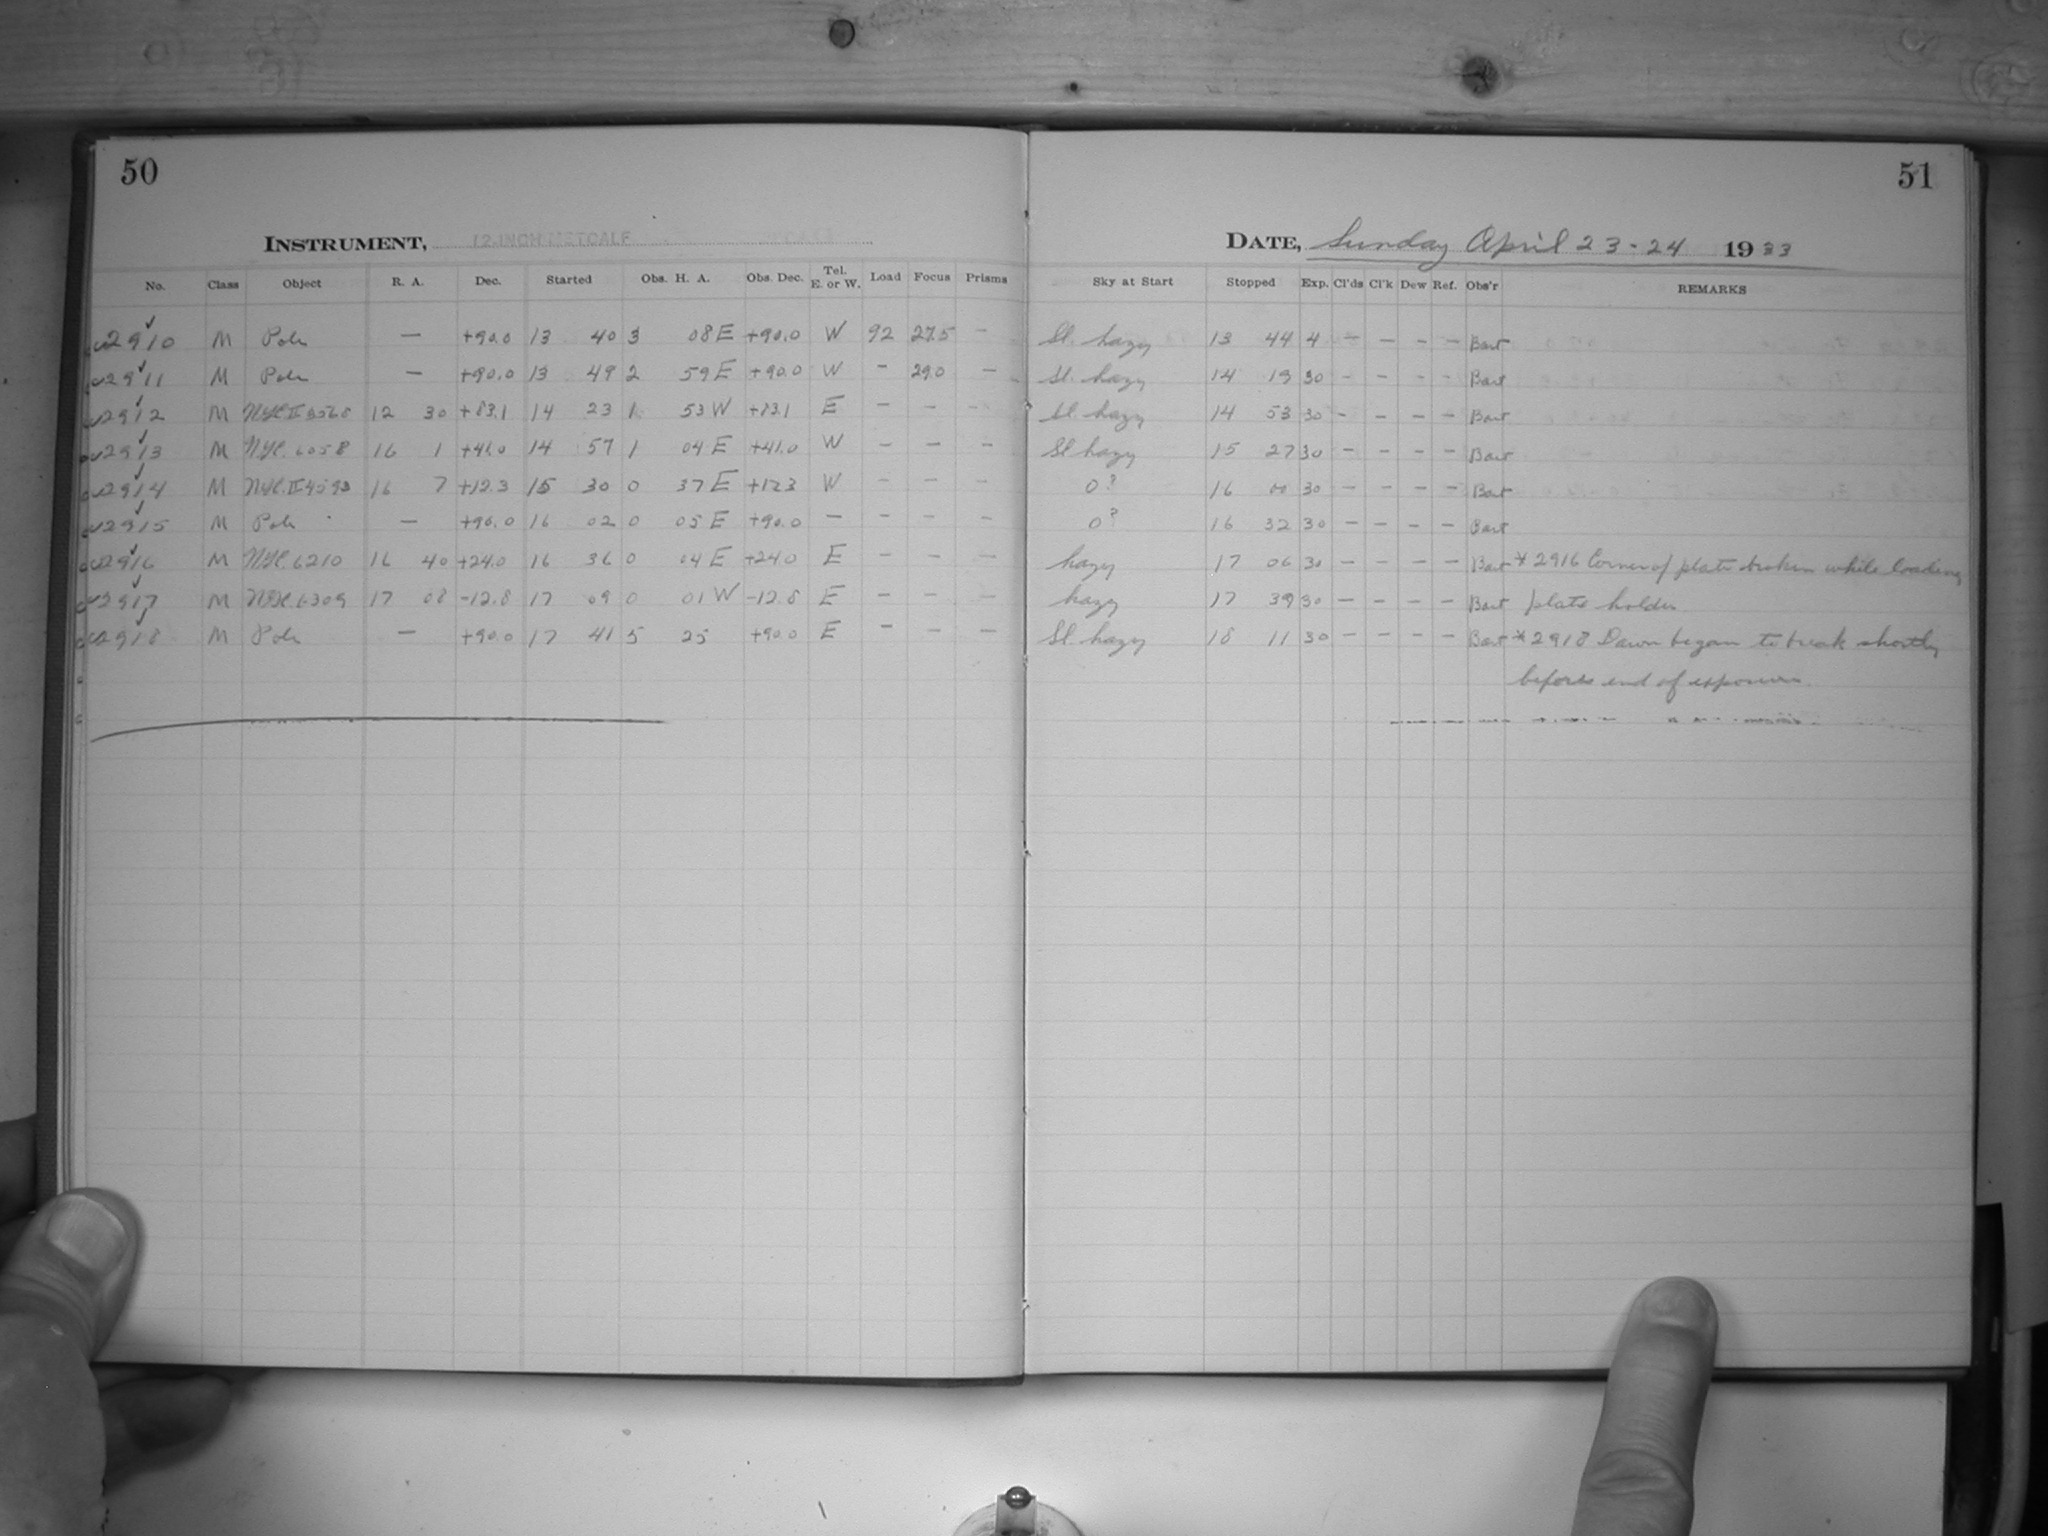 50
51
INSTRUMENT, 12-INCH METCALF
DATE, Sunday April 23-24 1933
No. Class Object R. A. Dec. Started Obs. H. A. Obs. Dec. Tel. E. or W. Load Focus Prisms Sky at Start Stopped Exp. Cl'ds Cl'k Dew Ref. Obs'r REMARKS
2910 M Pole — +90.0 13 40 3 08 E +90.0 W 92 27.5 — Sl. hazy 13 44 4 — — — — Bart
2911 M Pole — +90.0 13 49 2 59 E +90.0 W — 29.0 — Sl. hazy 14 19 30 — — — — Bart
2912 M 12 30 +83.1 14 23 1 53 W +83.1 E — — — Sl. hazy 14 53 30 — — — — Bart
2913 M 6058 16 1 +41.0 14 57 1 04 E +41.0 W — — — Sl hazy 15 27 30 — — — — Bart
2914 M 16 7 +12.3 15 30 0 37 E +12.3 W — — — 0? 16 00 30 — — — — Bart
2915 M Pole — +90.0 16 02 0 05 E +90.0 — — — — 0? 16 32 30 — — — — Bart
2916 M 6210 16 40 +24.0 16 36 0 04 E +24.0 E — — — hazy 17 06 30 — — — — Bart * 2916 Corner of plate broken while loading
2917 M 6309 17 08 -12.8 17 09 0 01 W -12.8 E — — — hazy 17 39 30 — — — — Bart plate holder
2918 M Pole — +90.0 17 41 5 25 +90.0 E — — — Sl. hazy 18 11 30 — — — — Bart * 2918 Dawn began to break shortly
before end of exposure